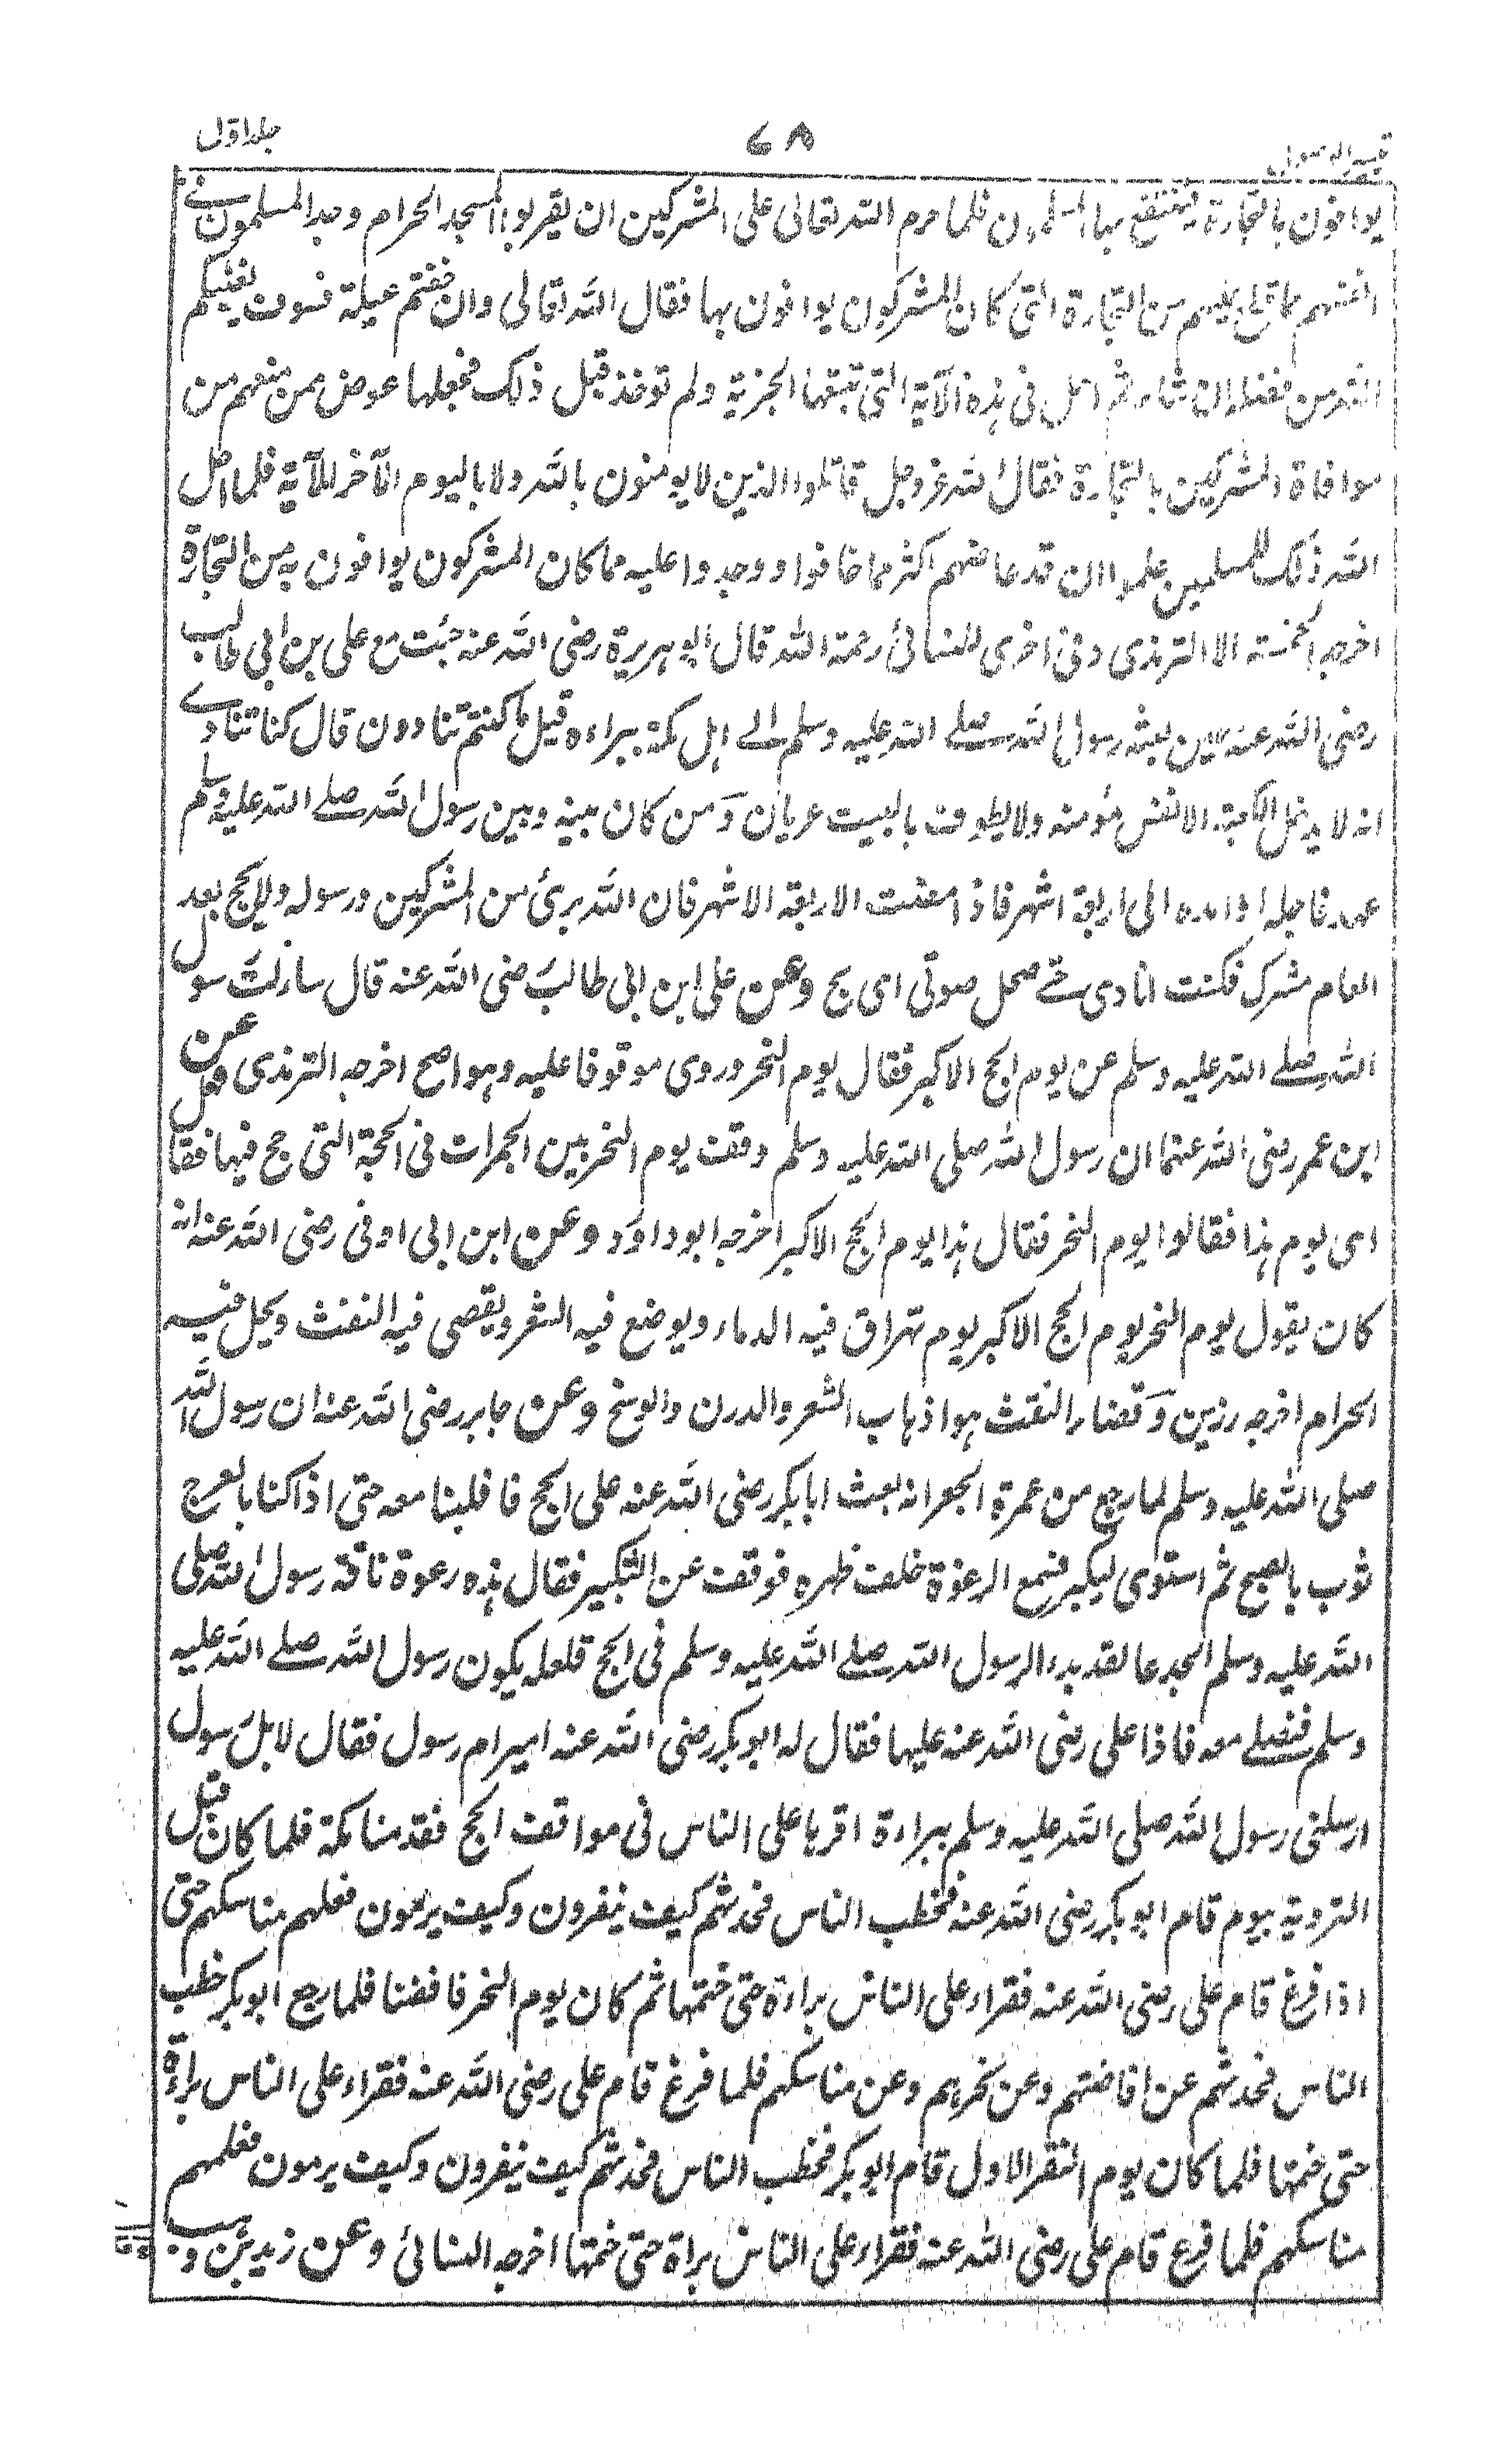 جلد اول
۷۸
يوافون بالتجارة فينتفع بها المسلمون فلما حرم الله تعالى على المشركين ان يقربوا المسجد الحرام وجد المسلمون في
انفسهم مما قطع عليهم من التجارة التي كان المشركون يوافون بها فقال الله تعالى وان خفتم عيلة فسوف يغنيكم
الله من فضله ان شاء ثم احل في هذه الآية التي تتبعها الجزية ولم توخذ قبل ذلك فجعلها عوض ممن منعهم من
موافاة المشركين بالتجارة فقال الله عز وجل قاتلوا الذين لا يومنون بالله ولا باليوم الآخر الآية فلما احل
الله ذلك للمسلمين علموا ان قد عاضهم اكثر مما خافوا ووجدوا عليه مما كان المشركون يوافون به من التجارة
اخرجه الخمسة الا الترمذى وفى اخرى للنسائى رحمة الله قال ابو هريرة رضى الله عنه جئت مع على بن ابي طالب
رضى الله عنه حين بعثه رسول الله صلے الله عليه وسلم الے اهل مكة ببراءه قيل ما كنتم تنادون قال كنا تنادے
انه لا يدخل الجنة الا نفس مؤمنه ولا يطوف بالبيت عريان وَمن كان بينه وبين رسول الله صلے الله عليه وسلم
عهد فاجله او امده الى اربعة اشهر فاذا مضت الاربعة الاشهر فان الله برئ من المشركين ورسوله ولا يحج بعد
العام مشرك فكنت انادى حتے صحل صوتى اى بح وعن على ابن ابى طالب رضى الله عنه قال سالت رسول
الله صلے الله عليه وسلم عن يوم الحج الاكبر فقال يوم النحر وروى موقوفا عليه وهو اصح اخرجه الترمذى وعن
ابن عمر رضى الله عنهما ان رسول الله صلى الله عليه وسلم وقف يوم النحر بين الجمرات فى الحجة التى حج فيها فقال
اى يوم هذا فقالوا يوم النحر فقال هذا يوم الحج الاكبر اخرجه ابو داود وعن ابن ابى اوفى رضى الله عنه انه
كان يقول يوم النحر يوم الحج الاكبر يوم تهراق فيه الدماء ويوضع فيه الشعر ويقضى فيه التفث ويحل فيه
الحرام اخرجه رزين وَقضاء التفث هو اذهاب الشعر والدرن والوسخ وعن جابر رضى الله عنه ان رسول الله
صلى الله عليه وسلم لما رجع من عمرة الجعرانه بعث ابا بكر رضى الله عنه على الحج فاقلبنا معه حتى اذا كنا بالعرج
ثوب بالصبح ثم استوى ليكبر فسمع الرغوة خلف ظهره فوقف عن التكبير فقال هذه رغوة ناقة رسول الله صلى
الله عليه وسلم الجدعا لقد بدء الرسول الله صلے الله عليه وسلم فى الحج فلعله يكون رسول الله صلے الله عليه
وسلم فنصلے معه فاذا على رضى الله عنه عليها فقال له ابو بكر رضى الله عنه امير ام رسول فقال لا بل رسول
ارسلنى رسول الله صلى الله عليه وسلم ببراءة اقرها على الناس فى مواقف الحج فقدمنا مكة فلما كان قبل
التروية بيوم قام ابو بكر رضى الله عنه فخطب الناس فحدثهم كيف ينفرون وكيف يرمون فعلمهم مناسكهم حتى
اذا فرغ قام على رضى الله عنه فقراء على الناس براءة حتى ختمها ثم كان يوم النحر فافضنا فلما رجع ابو بكر خطب
الناس فحدثهم عن افاضتهم وعن نحرهم وعن مناسكهم فلما فرغ قام على رضى الله عنه فقراء على الناس براءة
حتى ختمها فلما كان يوم النفر الاول قام ابو بكر فخطب الناس فحدثهم كيف ينفرون وكيف يرمون فعلمهم
مناسكهم فلما فرغ قام على رضى الله عنه فقراء على الناس براة حتى ختمها اخرجه النسائى وعن زيد بن وهب